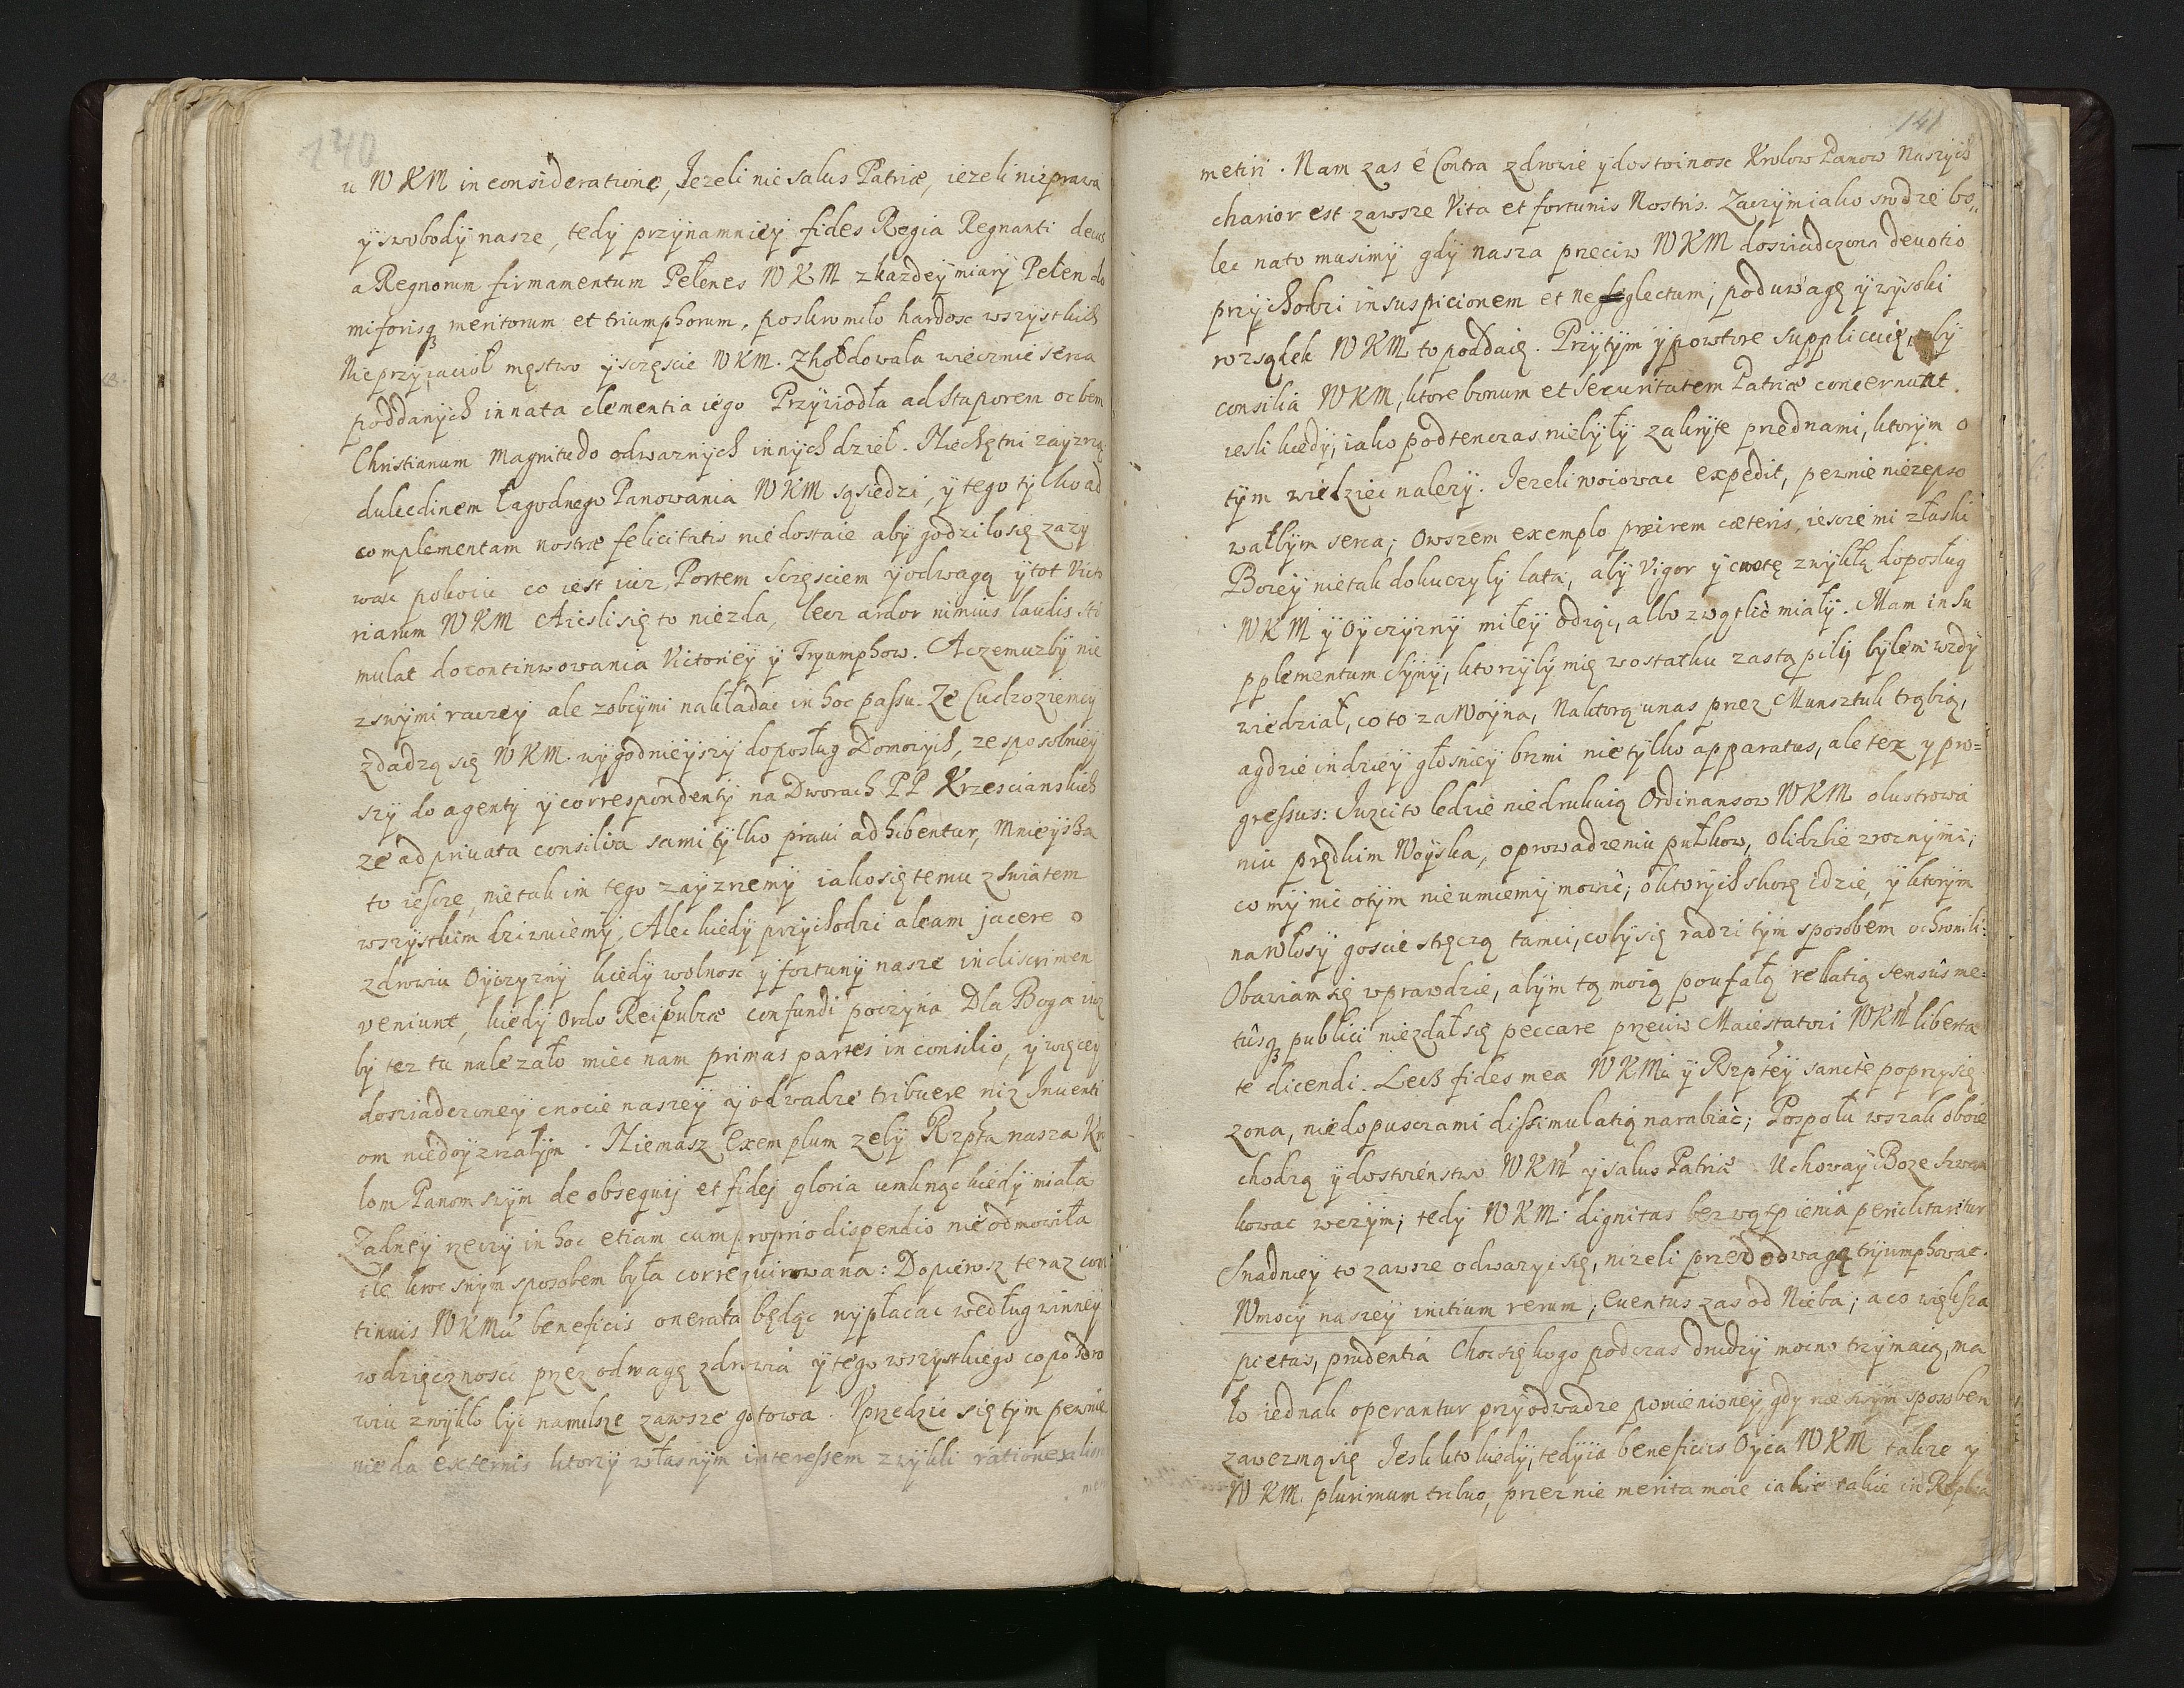 140
u WKM in consideratione, Jezeli nic salus Patriæ, iezeli nic prawa
y swobody nasze, tedy przynamniey fides Regia Regnanti decus
a Regnorum firmamentum Pełenes WKM z kazdey miary Pełen do
mi forisq meritorum et triumphorum, poskromiło hardosc wszystkich
Nieprzyiacioł męstwo y sczęscie WKM. Zhołdowała wiecznie serca
poddanych innata clementia iego Przywiodła ad stuporem orbem
Christianum Magnitudo odwaznych innych dzieł. Niechętni zayzrzą
dulcedinem łagodnego Panowania WKM sąsiedzi, y tego tylko ad
complementam nostræ felicitatis niedostaie aby godziło się zazy
wac pokoiu co iest iuz Portem Sczęsciem y odwagą y tot Victo
riarum WKM A iesli się to niezda, lecz ardor nimius laudis sti
mulat do continwowania Victoriey y Tryumphow. A czemuzby nie
z swymi raczey ale z obcymi nakładac in hoc passu. Ze Cudzoziemcy
zdadzą się WKM. wygodnieyszy do posług Domowych, ze sposobniey
szy do agenty y correspondenty na Dworach PP Krzescianskich
ze ad privata consilia sami tylko prawi adhibentur, Mnieysza
to iescze, nietak im tego zayzrzemy iako się temu z swiatem
wszystkim dziwuiemy, Alec kiedy przychodzi aleam jacere o
zdrowiu Oyczyzny kiedy wolnosc y fortuny nasze in discrimen
veniunt, kiedy Ordo Reipublicæ confundi poczyna Dla Boga iuz
by tez tu nalezało miec nam primas partes in consilio, y więcey
doswiadczoney cnocie naszey y odwadze tribuere niz Inventi
om niedoyzrałym. Niemasz Exemplum zeby Rzpta nasza Kro
lom Panom swym de obsequij et fidej gloria umknąc kiedy miała
Zadney rzeczy in hoc etiam cum proprio dispendio nieodmowiła
ile kroc swym sposobem była correquirowana: Dopierosz teraz con
tinuis WKMci beneficiis onerata będąc wypłacac według winney
wdzięcznosci przez odwagę zdrowia y tego wszystkiego co po zdro
wiu zwykło byc namilsze zawsze gotowa. Uprzedzic się tym pewnie
nieda externis ktorzy własnym interessem zwykli rationem
141
metiri. Nam zas è Contra zdrowie y dostoinosc Krolow Panow Naszych
charior est zawsze Vita et fortunis Nostris. Zaczym iako srodze bo„
lec nato musimy gdy nasza przeciw WKM doswiadczona devotio
przychodzi in suspicionem et neglectum, pod uwagę y wysoki
rozsądek WKM to poddaię. Przytym y powtore supplicuię, aby
consilia WKM, ktore bonum et Securitatem Patriæ concernunt
iesli kiedy, iako podtenczas niebyły zakryte przednami, ktorym o
tym wiedziec nalezy. Jezeli woiowac expedit, pewnie niezepso
wałbym serca; owszem exemplo præirem cæteris, iescze mi złaski
Bozey nietak dokuczyły lata, aby Vigor y cnotę zwykłą do posług
WKM y Oyczyzny miłey odiąc, albo zwątlic miały. Mam in Su
pplementum Syny, ktorzyby mię wostatku zastąpili bylem wzdy
wiedział, co to za Woyna, Naktorą unas przez Munsztuk trąbią,
a gdzieindziey głosniey brzmi nietylko apparatus, ale tez y pro=
gressus: Juzci to ledzie niedrukuią Ordinansow WKM o lustrowa
niu prędkim Woyska, o prowadzeniu pułkow, o lidzbie zroznymi;
co my nic o tym nieumiemy mowic, o ktorych skorę idzie, y ktorym
na Włosy goscie stręczą tamci, coby się radzi tym sposobem ochronili:
Obawiam się wprawdzie, abym tą moią poufałą relatią sensûs me=
tûsq publici niezdał się peccare przeciw Maiestatowi WKM liberta
te dicendi. Lecz fides mea WKMci y Rzptey sanctè poprzysię
zona, niedopuscza mi dissimulatią narabiac; Pospołu wszak oboie
chodzą y dostoienstwo WKM y salus Patriæ. Uchoway Boze szwan
kowac wczym; tedy WKM. dignitas bez wątpienia periclitaretur
Snadniey to zawsze odwazyc się, nizeli przed odwagą tryumphowac.
Wmocy naszey initium rerum; Euentus zas od Nieba; a co większa
pietas, prudentia Choc się kogo podczas drudzy mocno trzymaią, ma
ło iednak operantur przy odwadze pomienioney, gdy nie swym sposobem
zawezmą się Jesli kto kiedy, tedy ia beneficiis Oyca WKM takze y
WKM. plurimum tribuo, przeznie merita moie iakie takie in Repbca